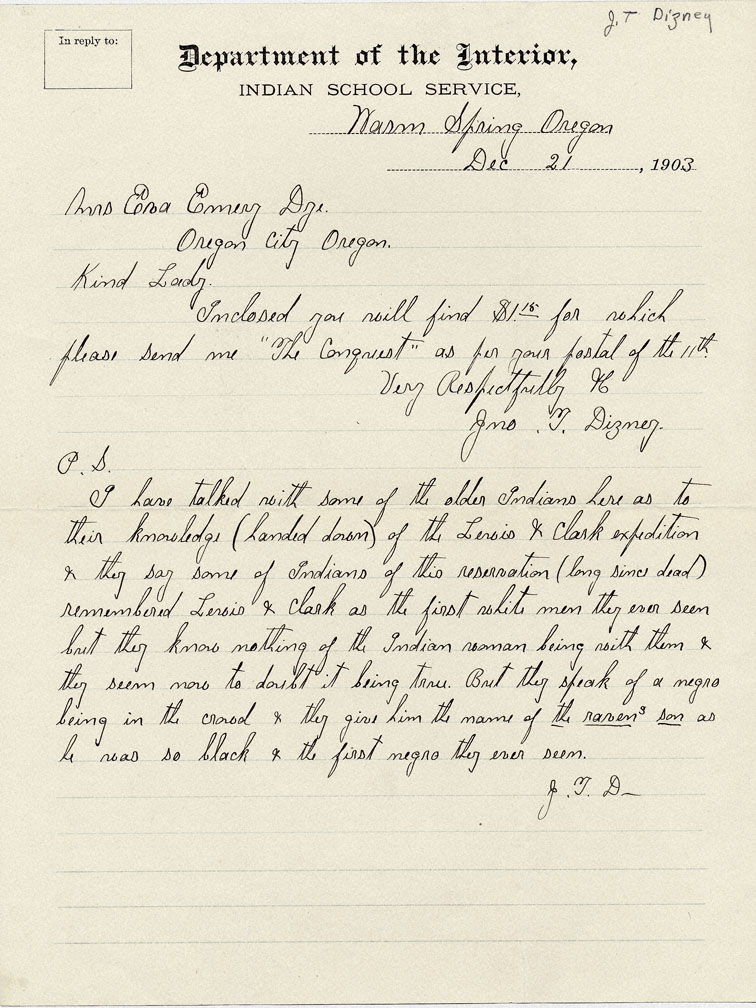 J. T Dizney
In reply to:
Department of the Interior,
INDIAN SCHOOL SERVICE,
Warm Spring Oregon
Dec 21, 1903
Mrs Eva Emery Dye.
Oregon City Oregon.
Kind Lady.
Inclosed you will find $1.15 for which
please send me "The Conquest" as per your postal of the 11th.
Very Respectfully &c
Jno. T. Dizney.
P. S.
I have talked with some of the older Indians here as to
their knowledge (handed down) of the Lewis & Clark expedition
& they say some of Indians of this reservation (long since dead)
remembered Lewis & Clark as the first white men they ever seen
but they know nothing of the Indian woman being with them &
they seem now to doubt it being true. But they speak of a negro
being in the crowd & they give him the name of the raven's son as
he was so black & the first negro they ever seen.
J. T. D—